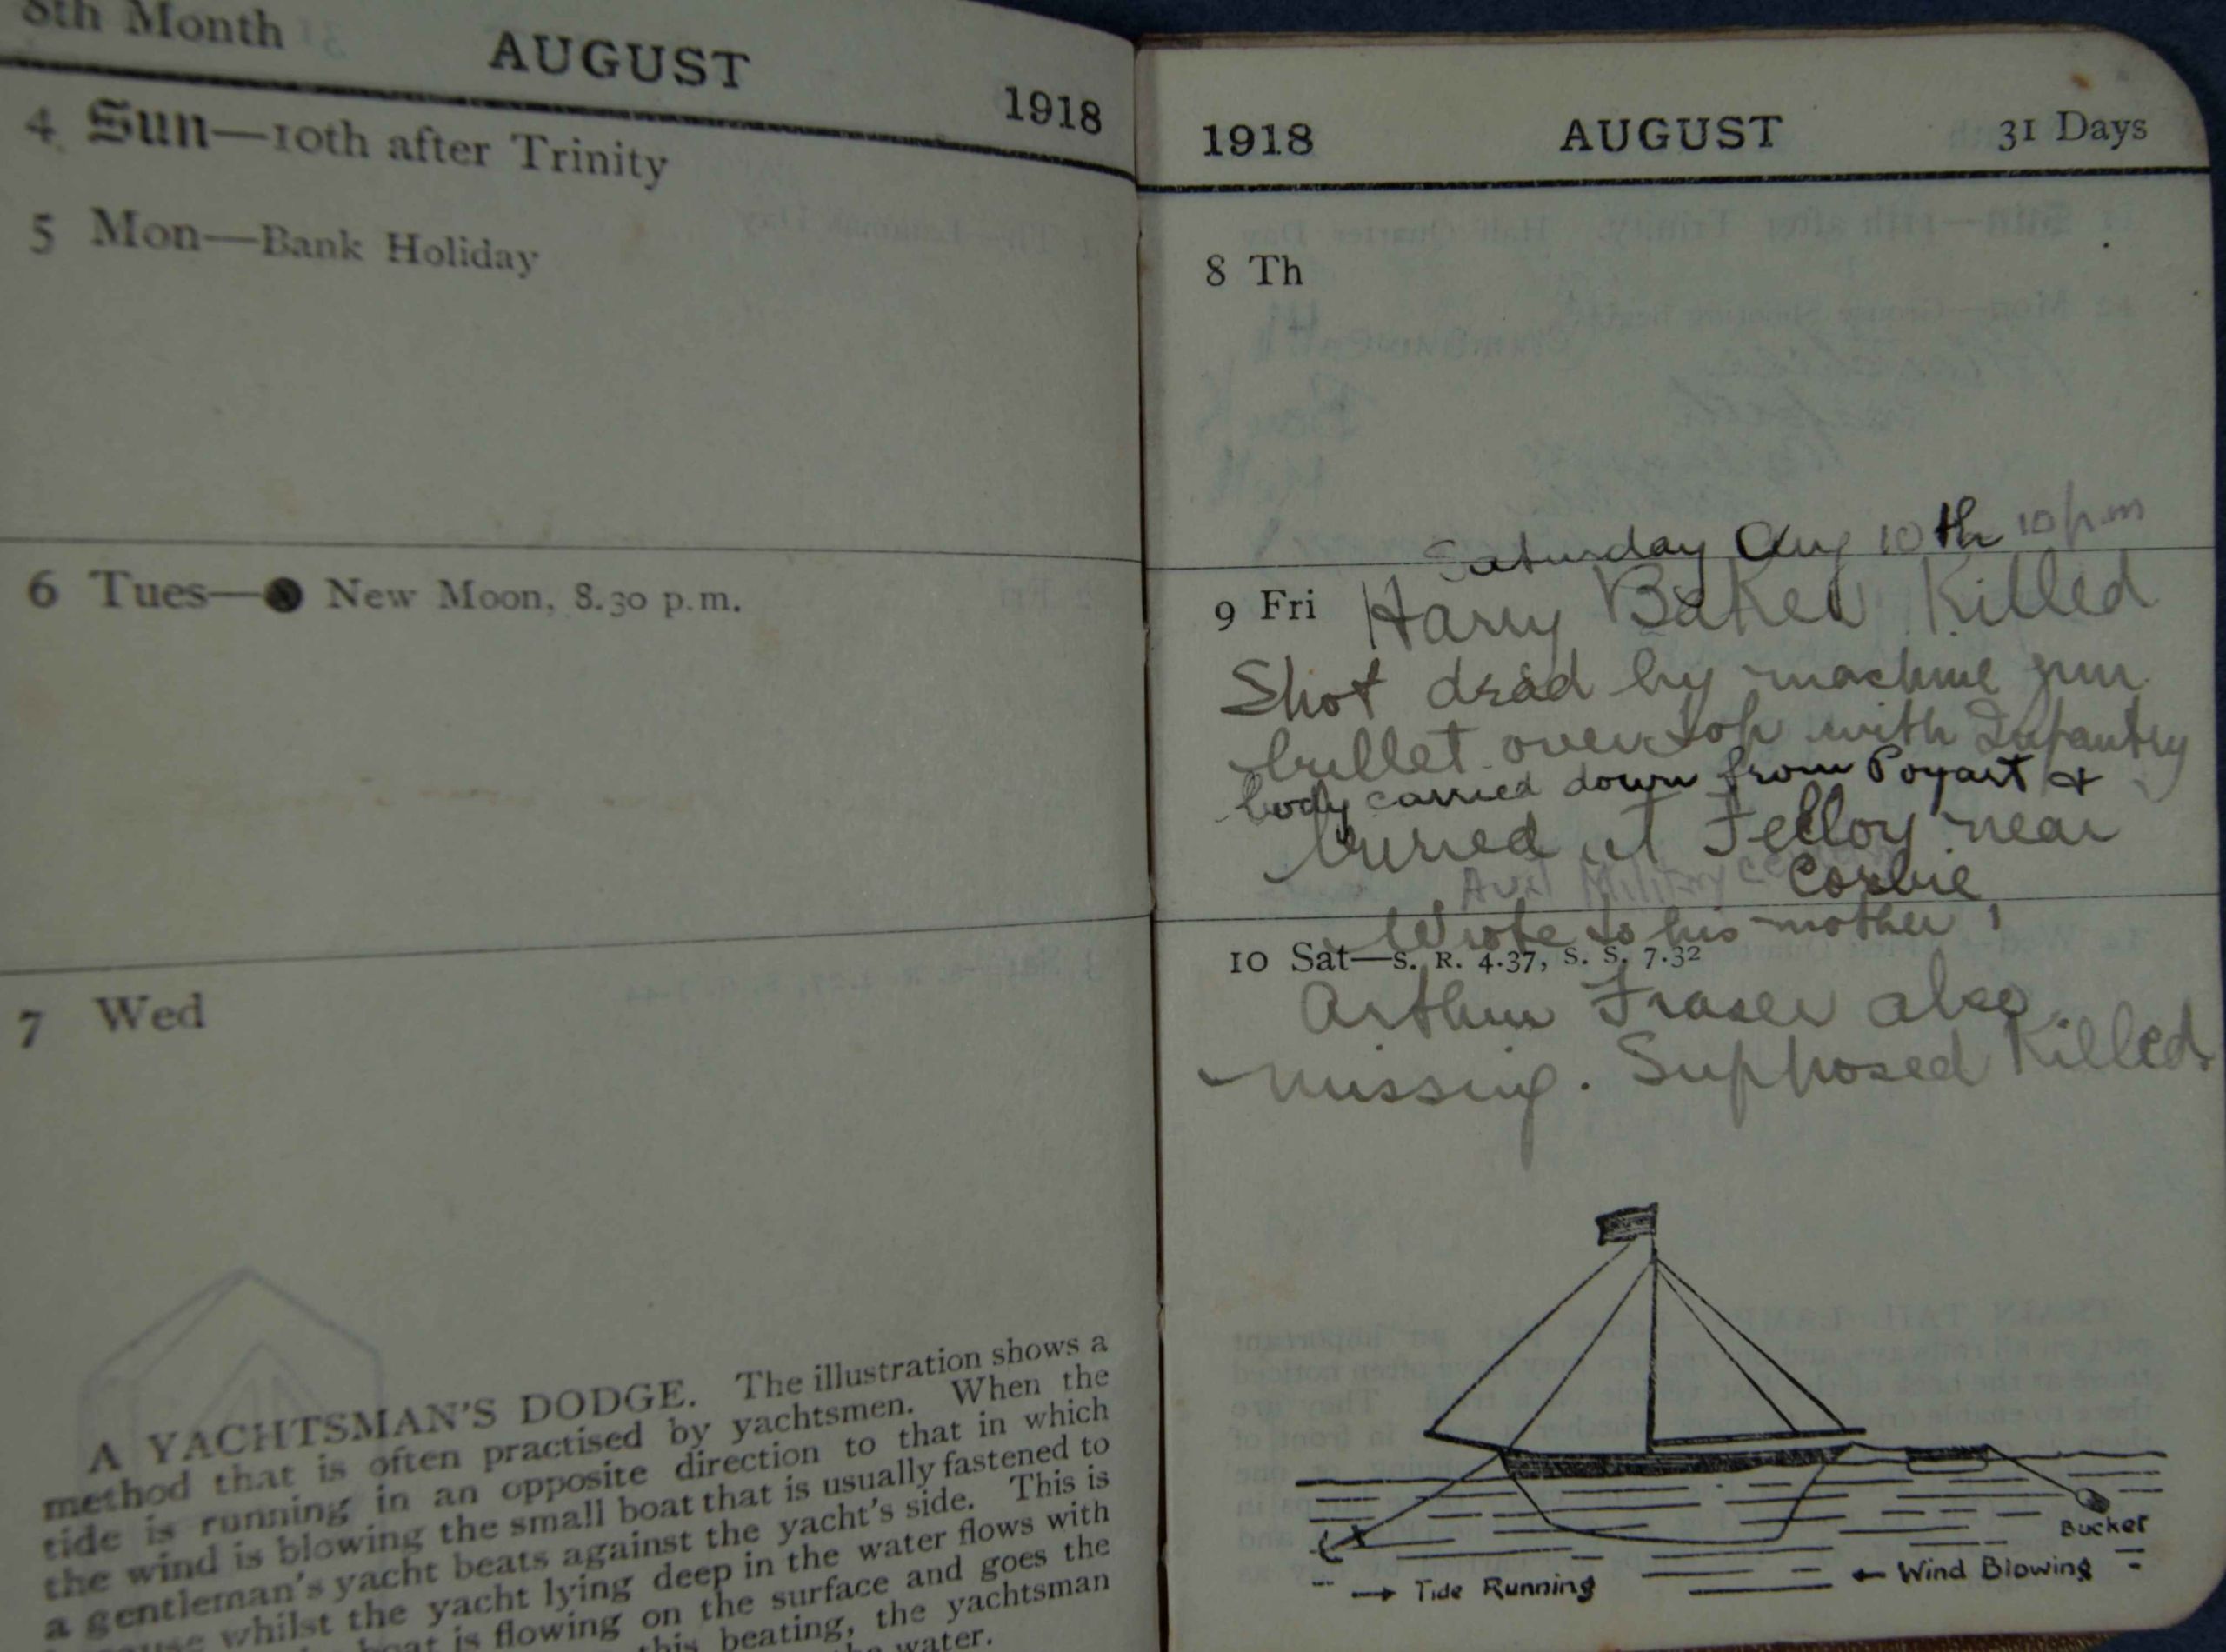 8th Month AUGUST 1918
4 Sun—10th after Trinity
5 Mon—Bank Holiday
6 Tues—● New Moon, 8.30 p.m.
7 Wed
A YACHTSMAN'S DODGE. The illustration shows a
method that is often practised by yachtsmen. When the
tide is running in an opposite direction to that in which
the wind is blowing the small boat that is usually fastened to
a gentleman's yacht beats against the yacht's side. This is
whilst the yacht lying deep in the water flows with
boat is flowing on the surface and goes the
this beating, the yachtsman
water.
1918 AUGUST 31 Days
8 Th
Saturday Aug 10th 10 p.m
9 Fri Harry Baker Killed
Shot dead by machine gun
bullet over top with Infantry
body carried down from Poyart &
buried at Felloy near
Military Corbie
Wrote to his mother
10 Sat—S. R. 4.37, S. S. 7.32
Arthur Fraser also
missing. Supposed Killed.
Bucket
→ Tide Running
← Wind Blowing